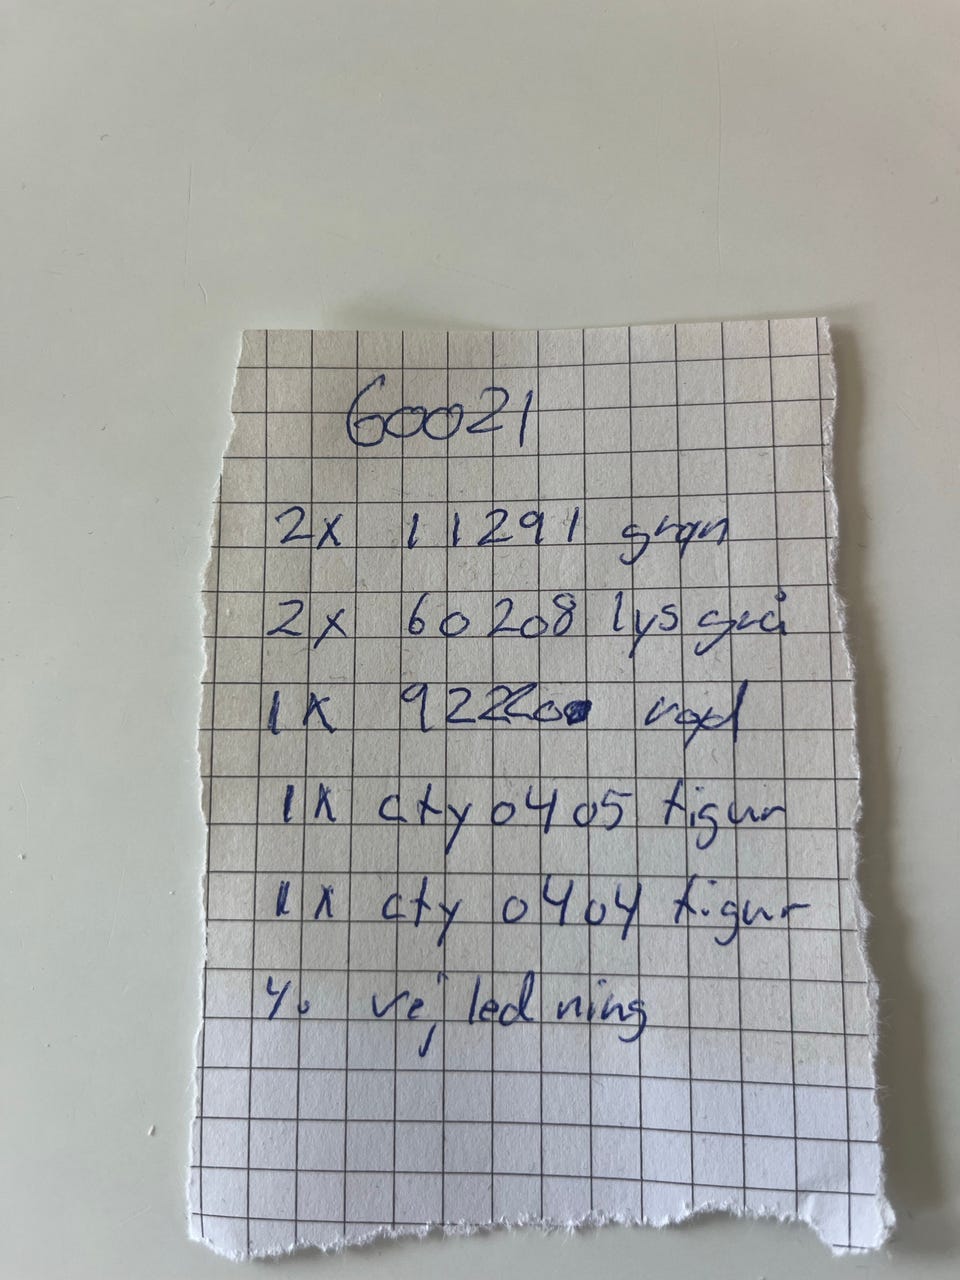 60021
2x 11291 grøn
2x 60208 lys grå
1x rød
1x cty 0405 figur
1x cty 0404 figur
% vejledning